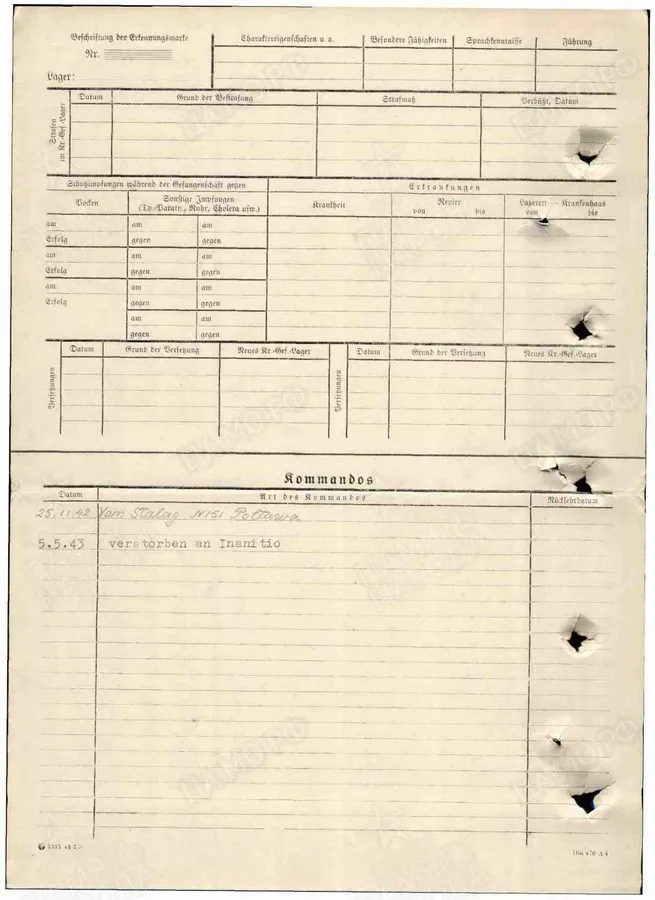 Beschriftung der Erkennungsmarke
Nr.
Lager:
Charaktereigenschaften u. a.
Besondere Fähigkeiten
Sprachkenntnisse
Führung
Strafen im Kr.-Gef.-Lager
Datum
Grund der Bestrafung
Strafmaß
Verbüßt, Datum
Schutzimpfungen während der Gefangenschaft gegen
Erkrankungen
Pocken
Sonstige Impfungen
(Ty.-Paraty., Ruhr, Cholera usw.)
Krankheit
Revier
von bis
Lazarett — Krankenhaus
von bis
am am am
Erfolg gegen gegen
am am am
Erfolg gegen gegen
am am am
Erfolg gegen gegen
am am
gegen gegen
Versetzungen
Datum
Grund der Versetzung
Neues Kr.-Gef.-Lager
Versetzungen
Datum
Grund der Versetzung
Neues Kr.-Gef.-Lager
Kommandos
Datum
Art des Kommandos
Rückkehrdatum
25.11.42 Vom Stalag N151 Poltawa
5.5.43 verstorben an Inanitio
Din 476 A 4
ЦАМО РФ